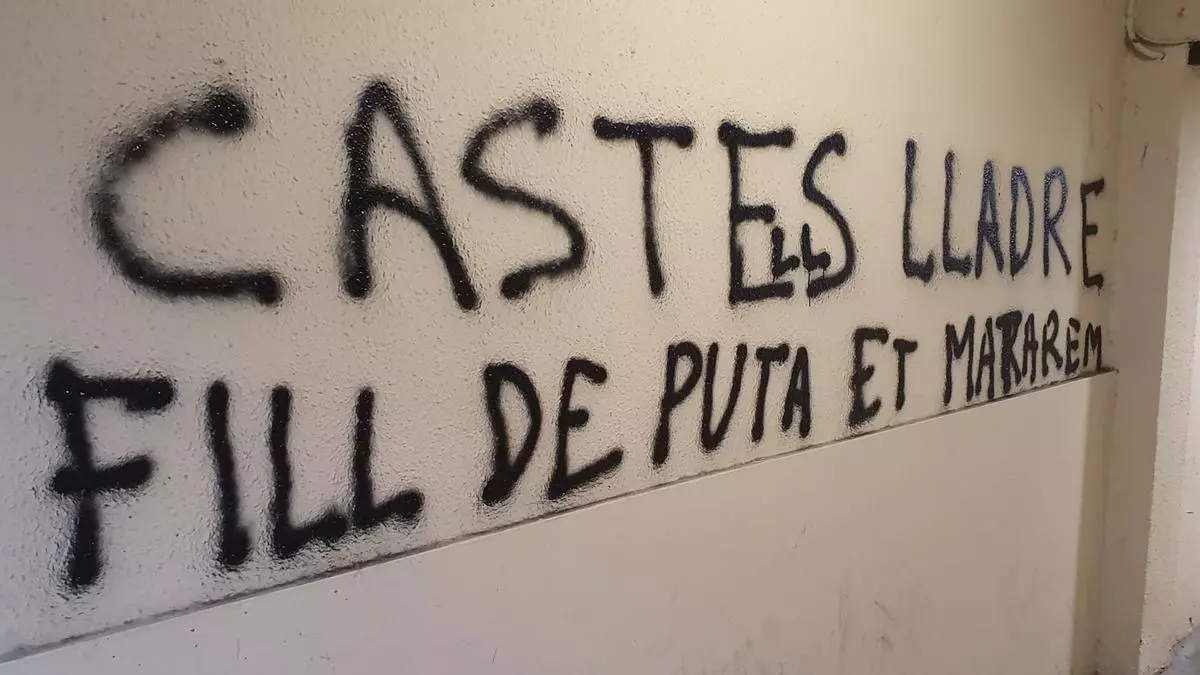 CASTEllS LLADRE
FILL DE PUTA ET MATAREM